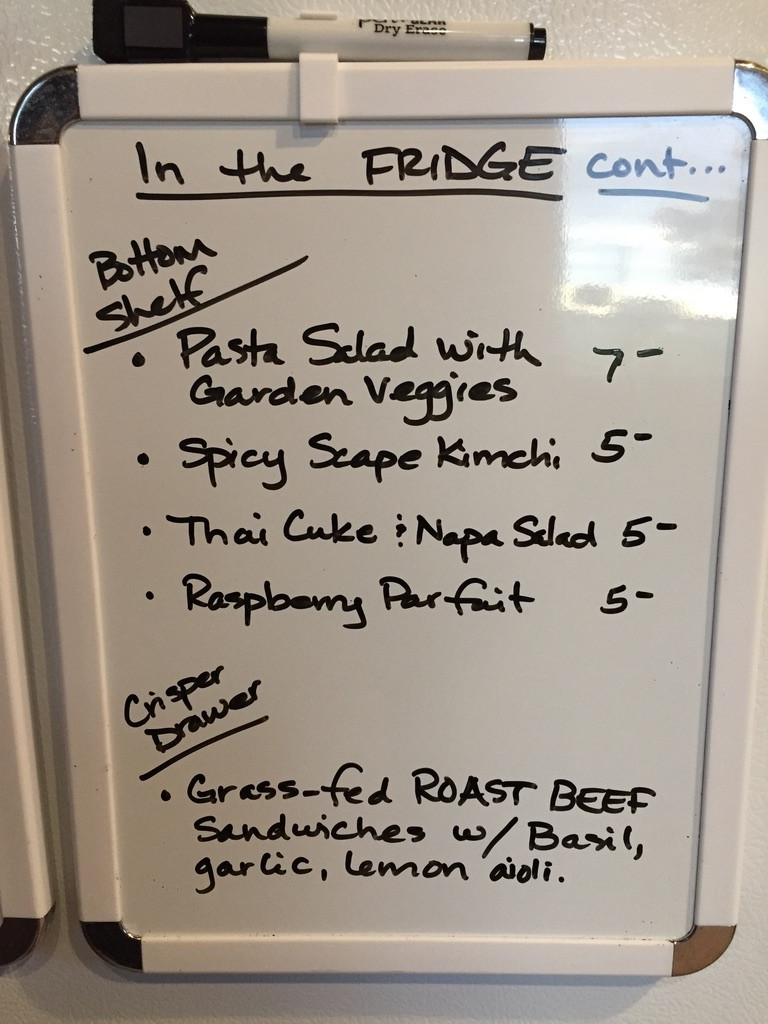 Dry Erase
In the FRIDGE cont...
Bottom
Shelf
• Pasta Salad with 7-
Garden Veggies
• Spicy Scape Kimchi 5-
• Thai Cuke & Napa Salad 5-
• Raspberry Parfait 5-
Crisper
Drawer
• Grass-fed ROAST BEEF
Sandwiches w/ Basil,
garlic, lemon aioli.